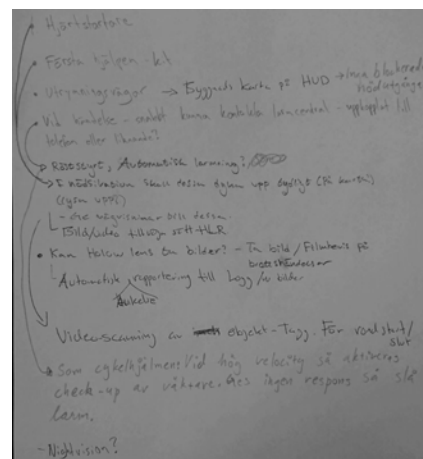 • Hjärtstartare
• Första hjälpen - kit
• Utrymningsvägar → Byggnads karta på HUD → inga blockerade nödutgångar
• Vid händelse - snabbt kunna kontakta larmcentral - uppkopplat till
telefon eller liknande?
Automatisk larmning?
I nödsituation skall dessa dyka upp tydligt (på kartan)
(lysa upp)
- Ge vägvisningar till dessa.
Bild/video tillsyn sätt HLR
• Kan Hololens ta bilder? - Ta bild / Filmhens på
brottshändelser
Automatisk rapportering till Logg /m bilder
Enkelt
Videoscanning av objekt - Tagg. För rondstart/
slut
Som cykelhjälmen. Vid hög velocity så aktiveras
check-up av väktare. Ges ingen respons så slå
larm.
- Nightvision?